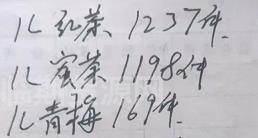 1L 红茶 1237件.
1L 蜜茶 1198件
1L 青梅 169件.